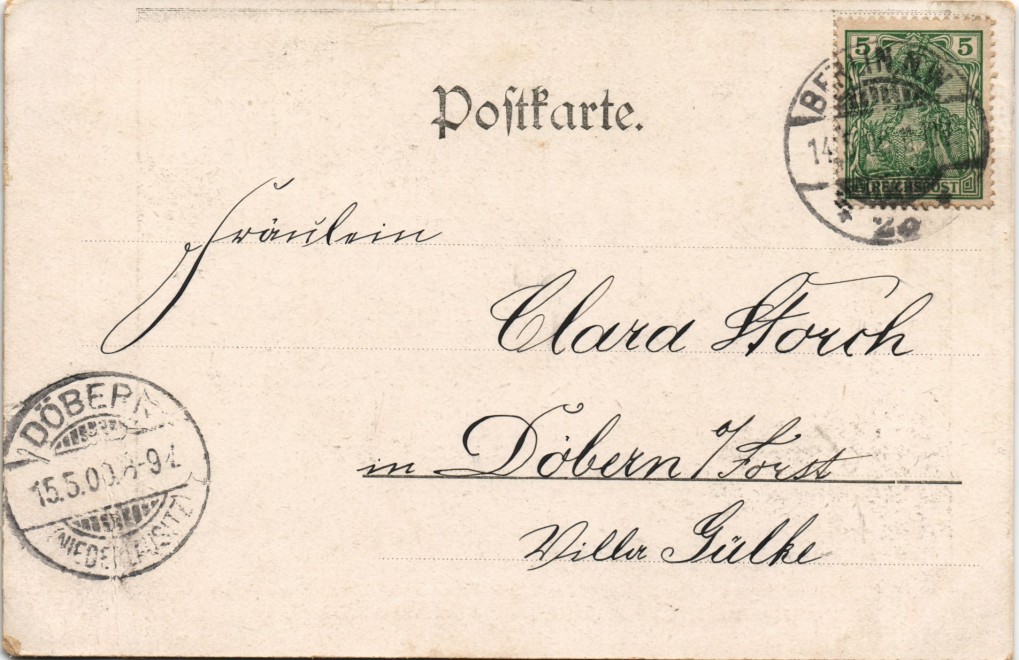 Postkarte.
5 5
REICHSPOST
BERLIN N.W.
14
* 2a *
Fräulein
Clara Storch
in Döbern a/Forst
Villa Gülke
DÖBERN
15.5.00. 8-9V.
(NIEDERLAUSITZ)